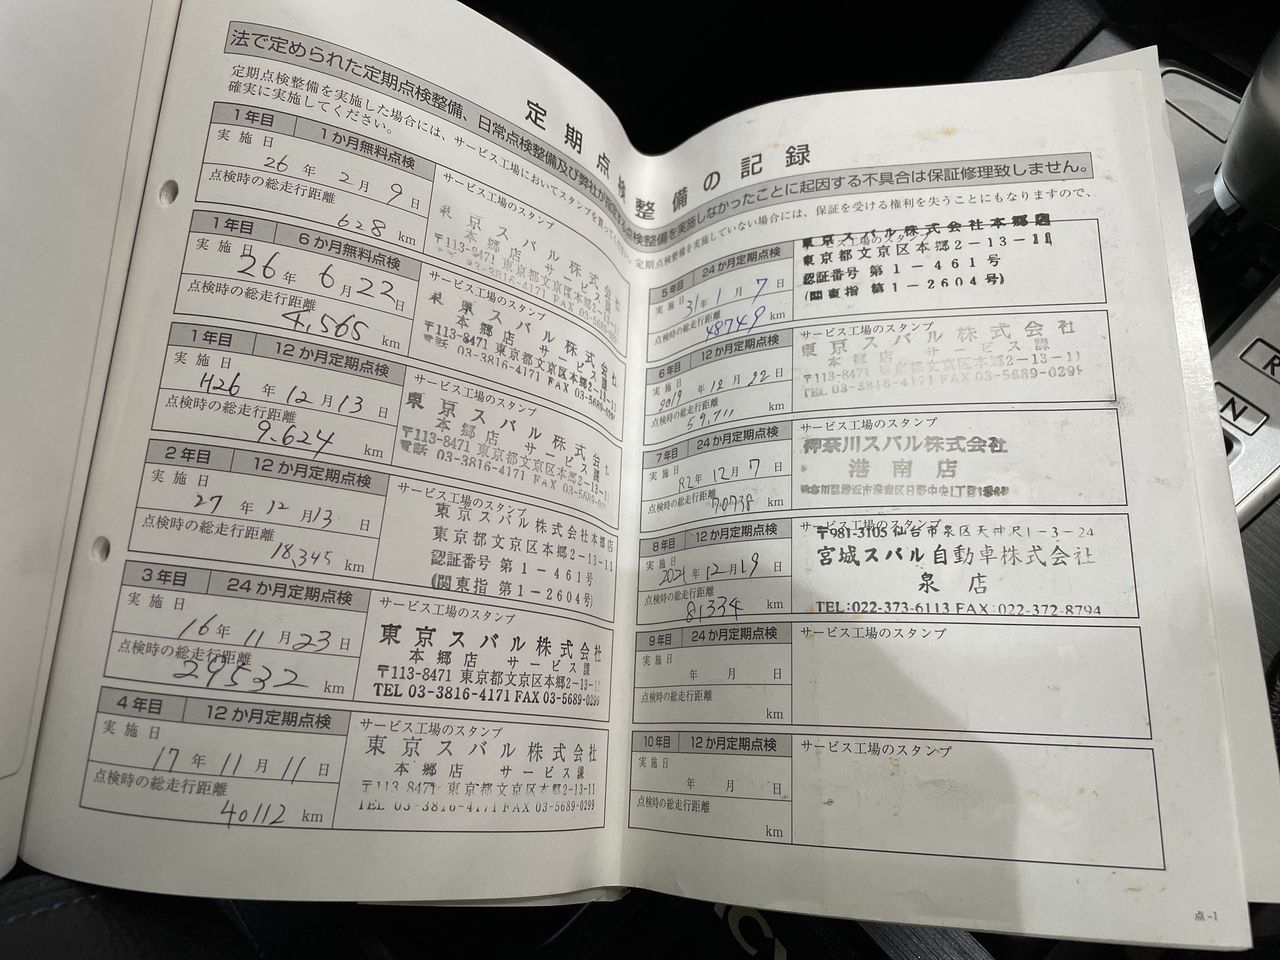 定期点検整備の記録
法で定められた定期点検整備、日常点検整備及び弊社が指定する点検整備を実施しなかったことに起因する不具合は保証修理致しません。
定期点検整備を実施した場合には、サービス工場においてスタンプを
定期点検整備を実施していない場合には、保証を受ける権利を失うことにもなりますので、
確実に実施してください。
1年目 1か月無料点検
実施日
26年2月9日
点検時の総走行距離
628 km
サービス工場のスタンプ
東京スバル株式会社
本郷店 サービス課
〒113-8471 東京都文京区本郷2-13-11
電話 03-3816-4171 FAX 03-5689-0299
1年目 6か月無料点検
実施日
26年6月22日
点検時の総走行距離
4,565 km
サービス工場のスタンプ
東京スバル株式会社
本郷店 サービス課
〒113-8471 東京都文京区本郷2-13-11
電話 03-3816-4171 FAX 03-5689-0299
1年目 12か月定期点検
実施日
H26年12月13日
点検時の総走行距離
9,624 km
サービス工場のスタンプ
東京スバル株式会社
本郷店 サービス課
〒113-8471 東京都文京区本郷2-13-11
電話 03-3816-4171 FAX 03-5689-0299
2年目 12か月定期点検
実施日
27年12月13日
点検時の総走行距離
18,345 km
サービス工場のスタンプ
東京スバル株式会社本郷店
東京都文京区本郷2-13-11
認証番号 第1-461号
(関東指 第1-2604号)
3年目 24か月定期点検
実施日
16年11月23日
点検時の総走行距離
29532 km
サービス工場のスタンプ
東京スバル株式会社
本郷店 サービス課
〒113-8471 東京都文京区本郷2-13-11
TEL 03-3816-4171 FAX 03-5689-0299
4年目 12か月定期点検
実施日
17年11月11日
点検時の総走行距離
40112 km
サービス工場のスタンプ
東京スバル株式会社
本郷店 サービス課
〒113-8471 東京都文京区本郷2-13-11
TEL 03-3816-4171 FAX 03-5689-0299
5年目 24か月定期点検
実施日
31年1月7日
点検時の総走行距離
48749 km
サービス工場のスタンプ
東京スバル株式会社本郷店
東京都文京区本郷2-13-11
認証番号 第1-461号
(関東指 第1-2604号)
6年目 12か月定期点検
実施日
2019年12月22日
点検時の総走行距離
59,711 km
サービス工場のスタンプ
東京スバル株式会社
本郷店 サービス課
〒113-8471 東京都文京区本郷2-13-11
TEL 03-3816-4171 FAX 03-5689-0299
7年目 24か月定期点検
実施日
R2年12月7日
点検時の総走行距離
70738 km
サービス工場のスタンプ
神奈川スバル株式会社
港南店
8年目 12か月定期点検
実施日
2021年12月19日
点検時の総走行距離
81334 km
サービス工場のスタンプ
〒981-3105 仙台市泉区天神沢1-3-24
宮城スバル自動車株式会社
泉店
TEL:022-373-6113 FAX:022-372-8794
9年目 24か月定期点検
実施日
年 月 日
点検時の総走行距離
km
サービス工場のスタンプ
10年目 12か月定期点検
実施日
年 月 日
点検時の総走行距離
km
サービス工場のスタンプ
点-1
R
N